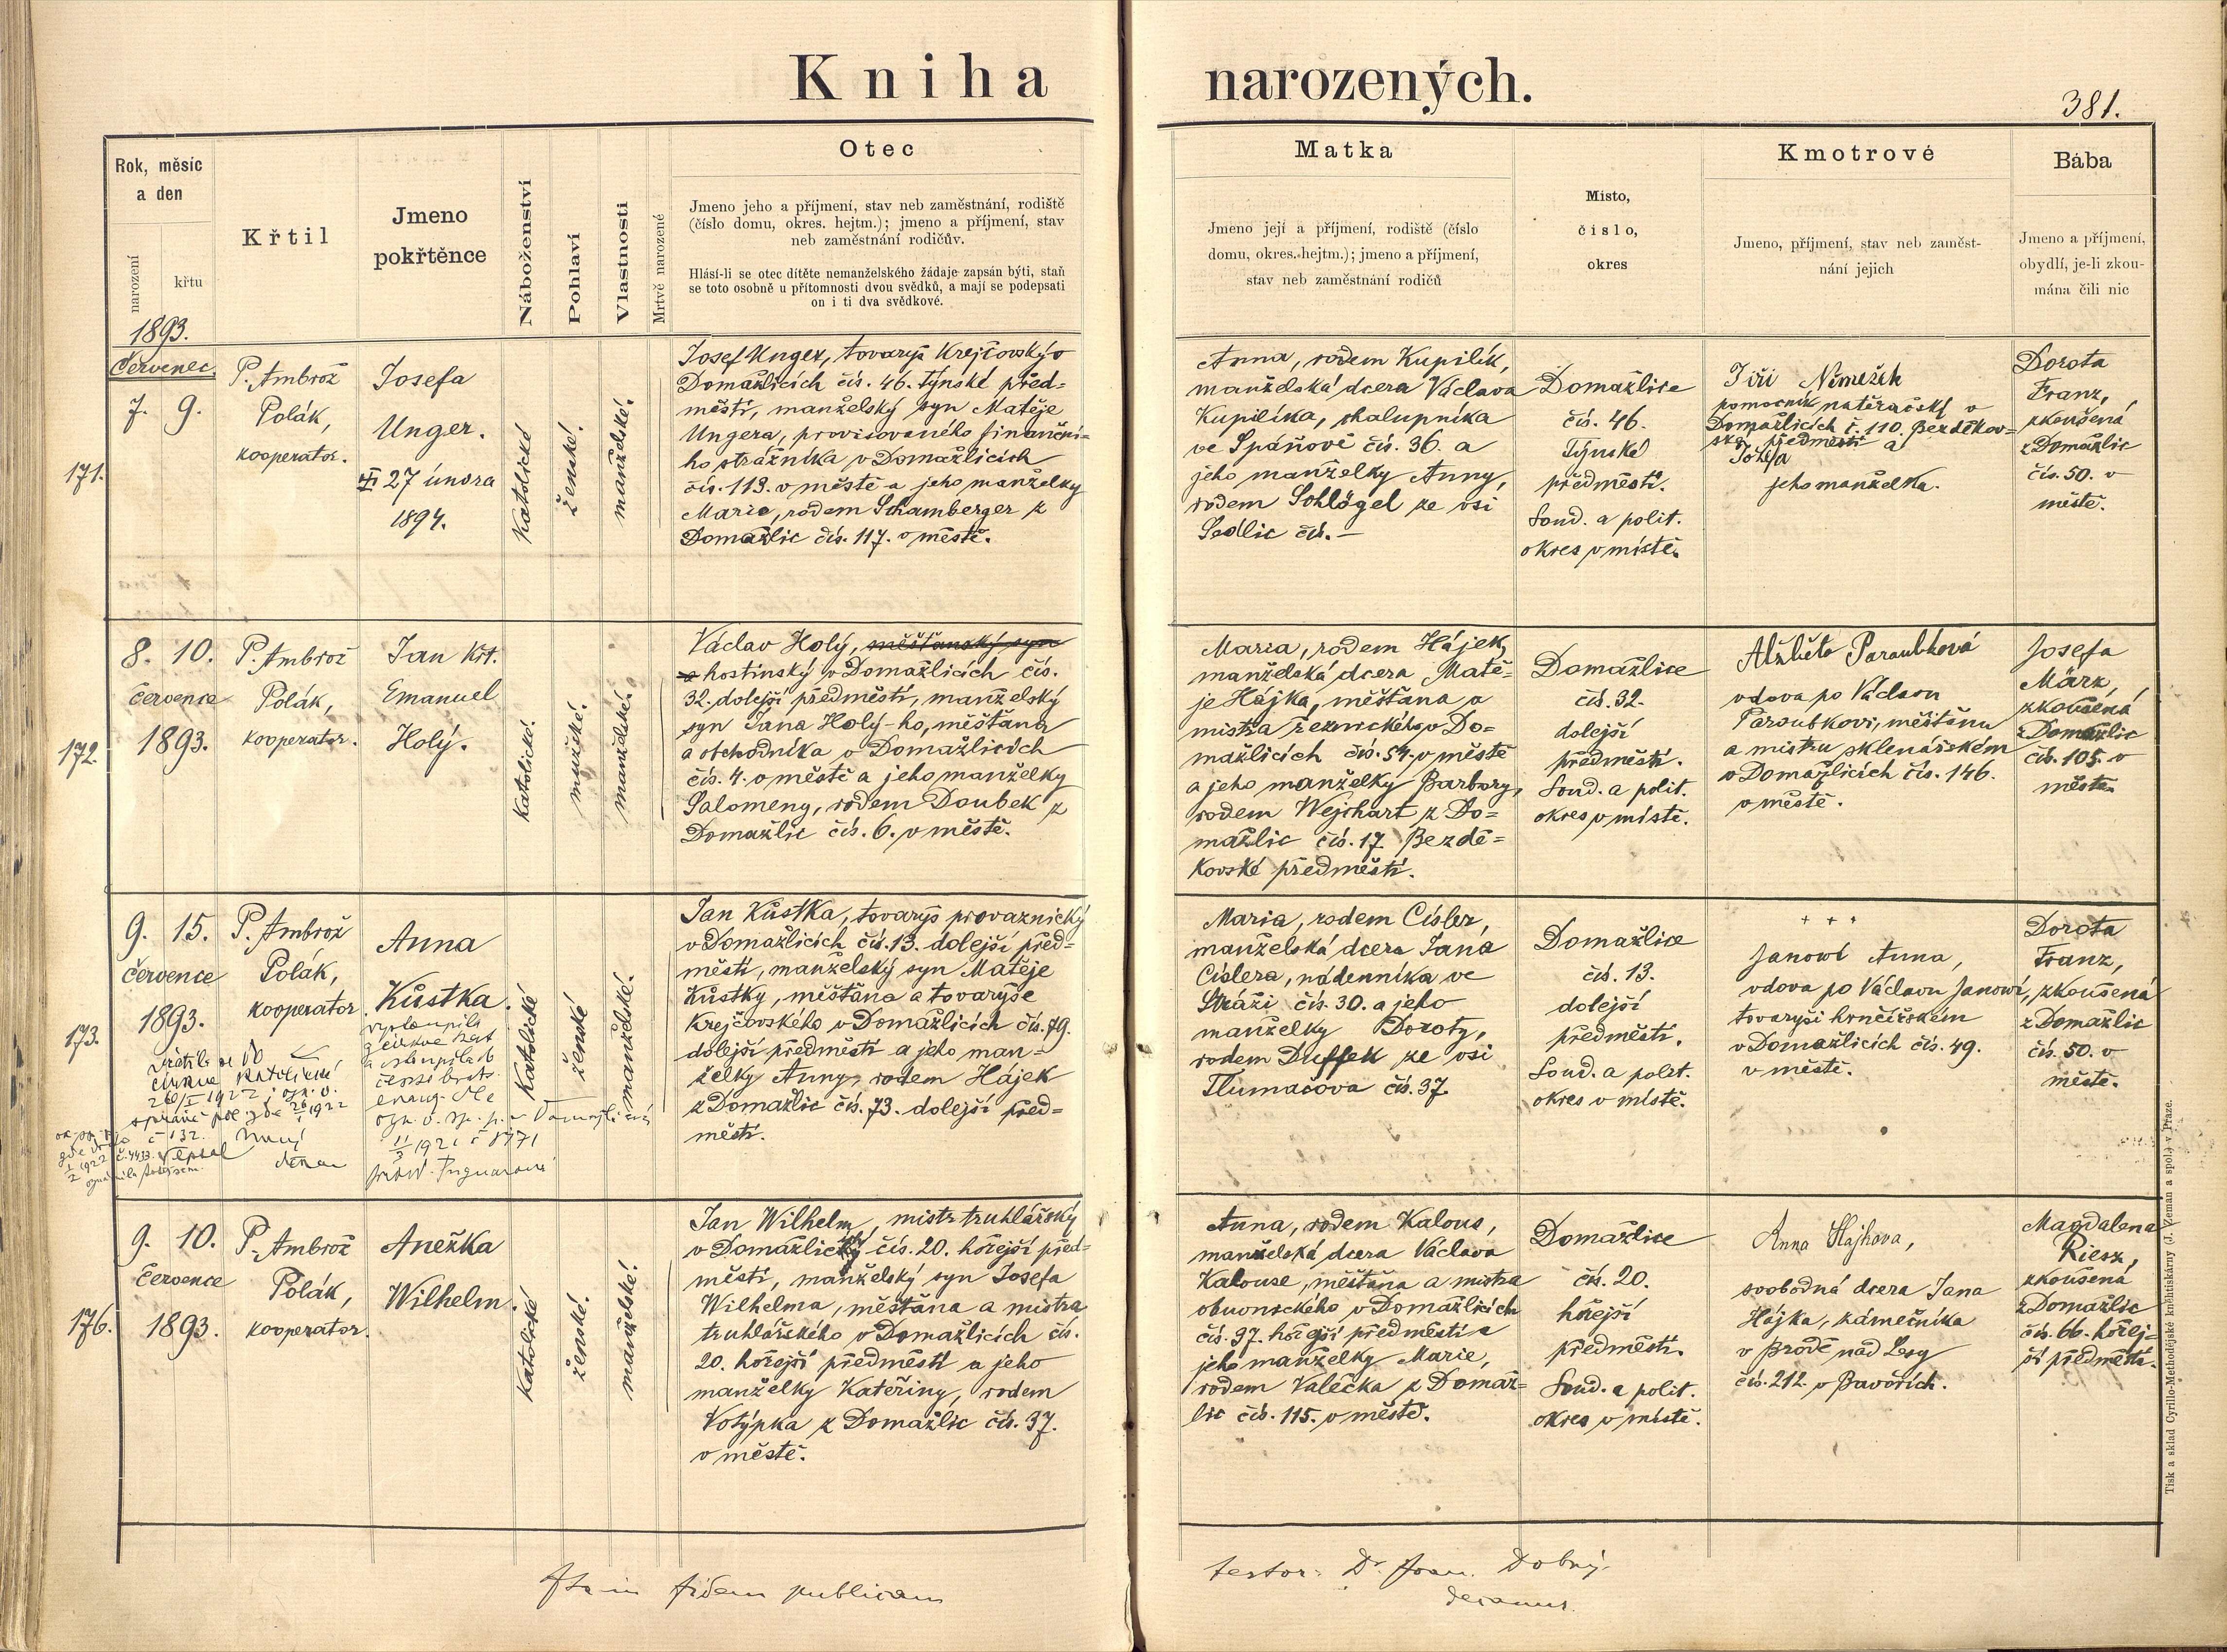 Kniha narozených.
381.
Rok, měsíc
a den
narození
křtu
Křtil
Jmeno
pokřtěnce
Náboženství
Pohlaví
Vlastnosti
Mrtvě narozené
Otec
Jmeno jeho a příjmení, stav neb zaměstnání, rodiště
(číslo domu, okres. hejtm.); jmeno a příjmení, stav
neb zaměstnání rodičův.
Hlásí-li se otec dítěte nemanželského žádaje zapsán býti, staň
se toto osobně u přítomnosti dvou svědků, a mají se podepsati
on i ti dva svědkové.
Matka
Jmeno její a příjmení, rodiště (číslo
domu, okres. hejtm.); jmeno a příjmení,
stav neb zaměstnání rodičů
Místo,
číslo,
okres
Kmotrové
Jmeno, příjmení, stav neb zaměst-
nání jejich
Bába
Jmeno a příjmení,
obydlí, je-li zkou-
mána čili nic
1893.
Červenec
171.
7. 9.
P. Ambrož
Polák,
kooperator.
Josefa
Unger.
27 února
1894.
Katolické
ženské.
manželské.
Josef Unger, tovaryš krejčovský v
Domažlicích čís. 46. Týnské před=
městí, manželský syn Matěje
Ungera, provisovaného finanční=
ho strážníka v Domažlicích
čís. 119. v městě a jeho manželky
Marie, rodem Schamberger z
Domažlic čís. 117. v městě.
Anna, rodem Kupilík,
manželská dcera Václava
Kupilíka, chalupníka
ve Spáňově čís. 36. a
jeho manželky Anny,
rodem Schlögel ze vsi
Sedlic čís. —
Domažlice
čís. 46.
Týnské
předměstí.
Soud. a polit.
okres v místě.
Jiří Němeček
pomocník natěračský v
Domažlicích č. 110. Bezděkov=
ské předměstí a
Josefa
jeho manželka.
Dorota
Franz,
zkoušená
z Domažlic
čís. 50. v
městě.
172.
8. 10.
července
1893.
P. Ambrož
Polák,
kooperator.
Jan Křt.
Emanuel
Holý.
Katolické.
mužské.
manželské.
Václav Holý, měšťanský syn
a hostinský v Domažlicích čís.
32. dolejší předměstí, manželský
syn Jana Holý-ho, měšťana
a obchodníka v Domažlicích
čís. 4. v městě a jeho manželky
Salomeny, rodem Doubek z
Domažlic čís. 6. v městě.
Maria, rodem Hájek,
manželská dcera Matě=
je Hájka, měšťana a
mistra řeznického v Do=
mažlicích čís. 54. v městě
a jeho manželky Barbory,
rodem Wejchart z Do=
mažlic čís. 17. Bezdě=
kovské předměstí.
Domažlice
čís. 32.
dolejší
předměstí.
Soud. a polit.
okres v místě.
Alžběta Paroubková
vdova po Václavu
Paroubkovi, měšťanu
a mistru sklenářském
v Domažlicích čís. 146.
v městě.
Josefa
März,
zkoušená
z Domažlic
čís. 105. v
městě.
173.
9. 15.
července
1893.
P. Ambrož
Polák,
kooperator.
Anna
Kůstka.
vystoupila
z církve kat
a vstoupila do
česko brat.
církve katolické
26/I 1922
Katolické
ženské
manželské.
Jan Kůstka, tovaryš provaznický
v Domažlicích čís. 13. dolejší před=
městí, manželský syn Matěje
Kůstky, měšťana a tovaryše
krejčovského v Domažlicích čís. 79.
dolejší předměstí a jeho man=
želky Anny, rodem Hájek
z Domažlic čís. 73. dolejší před=
městí.
Maria, rodem Císler,
manželská dcera Jana
Císlera, nádenníka ve
Stráži čís. 30. a jeho
manželky Doroty,
rodem Duffek ze vsi
Tlumačova čís. 37.
Domažlice
čís. 13.
dolejší
předměstí.
Soud. a polit.
okres v místě.
+ + +
Janowi Anna,
vdova po Václavu Janowi,
tovaryši hrnčířském
v Domažlicích čís. 49.
v městě.
Dorota
Franz,
zkoušená
z Domažlic
čís. 50. v
městě.
176.
9. 10.
července
1893.
P. Ambrož
Polák,
kooperator.
Anežka
Wilhelm.
Katolické
ženské.
manželské.
Jan Wilhelm, mistr truhlářský
v Domažlicích čís. 20. hořejší před=
městí, manželský syn Josefa
Wilhelma, měšťana a mistra
truhlářského v Domažlicích čís.
20. hořejší předměstí a jeho
manželky Kateřiny, rodem
Votýpka z Domažlic čís. 37.
v městě.
Anna, rodem Kalous,
manželská dcera Václava
Kalouse, měšťana a mistra
obuvnického v Domažlicích
čís. 37. hořejší předměstí a
jeho manželky Marie,
rodem Valečka z Domaž=
lic čís. 115. v městě.
Domažlice
čís. 20.
hořejší
předměstí.
Soud. a polit.
okres v místě.
Anna Hájkova,
svobodná dcera Jana
Hájka, kámečníka
v Brodě nad Lesy
čís. 212. v Bavořích.
Magdalena
Riesz,
zkoušená
z Domažlic
čís. 66. hořej=
ší předměstí.
Ita in fidem publicam
testor: Dr. Joan. Dobný.
decanus.
Tisk a sklad Cyrillo-Methodějské kněhtiskárny (J. Zeman a spol.) v Praze.